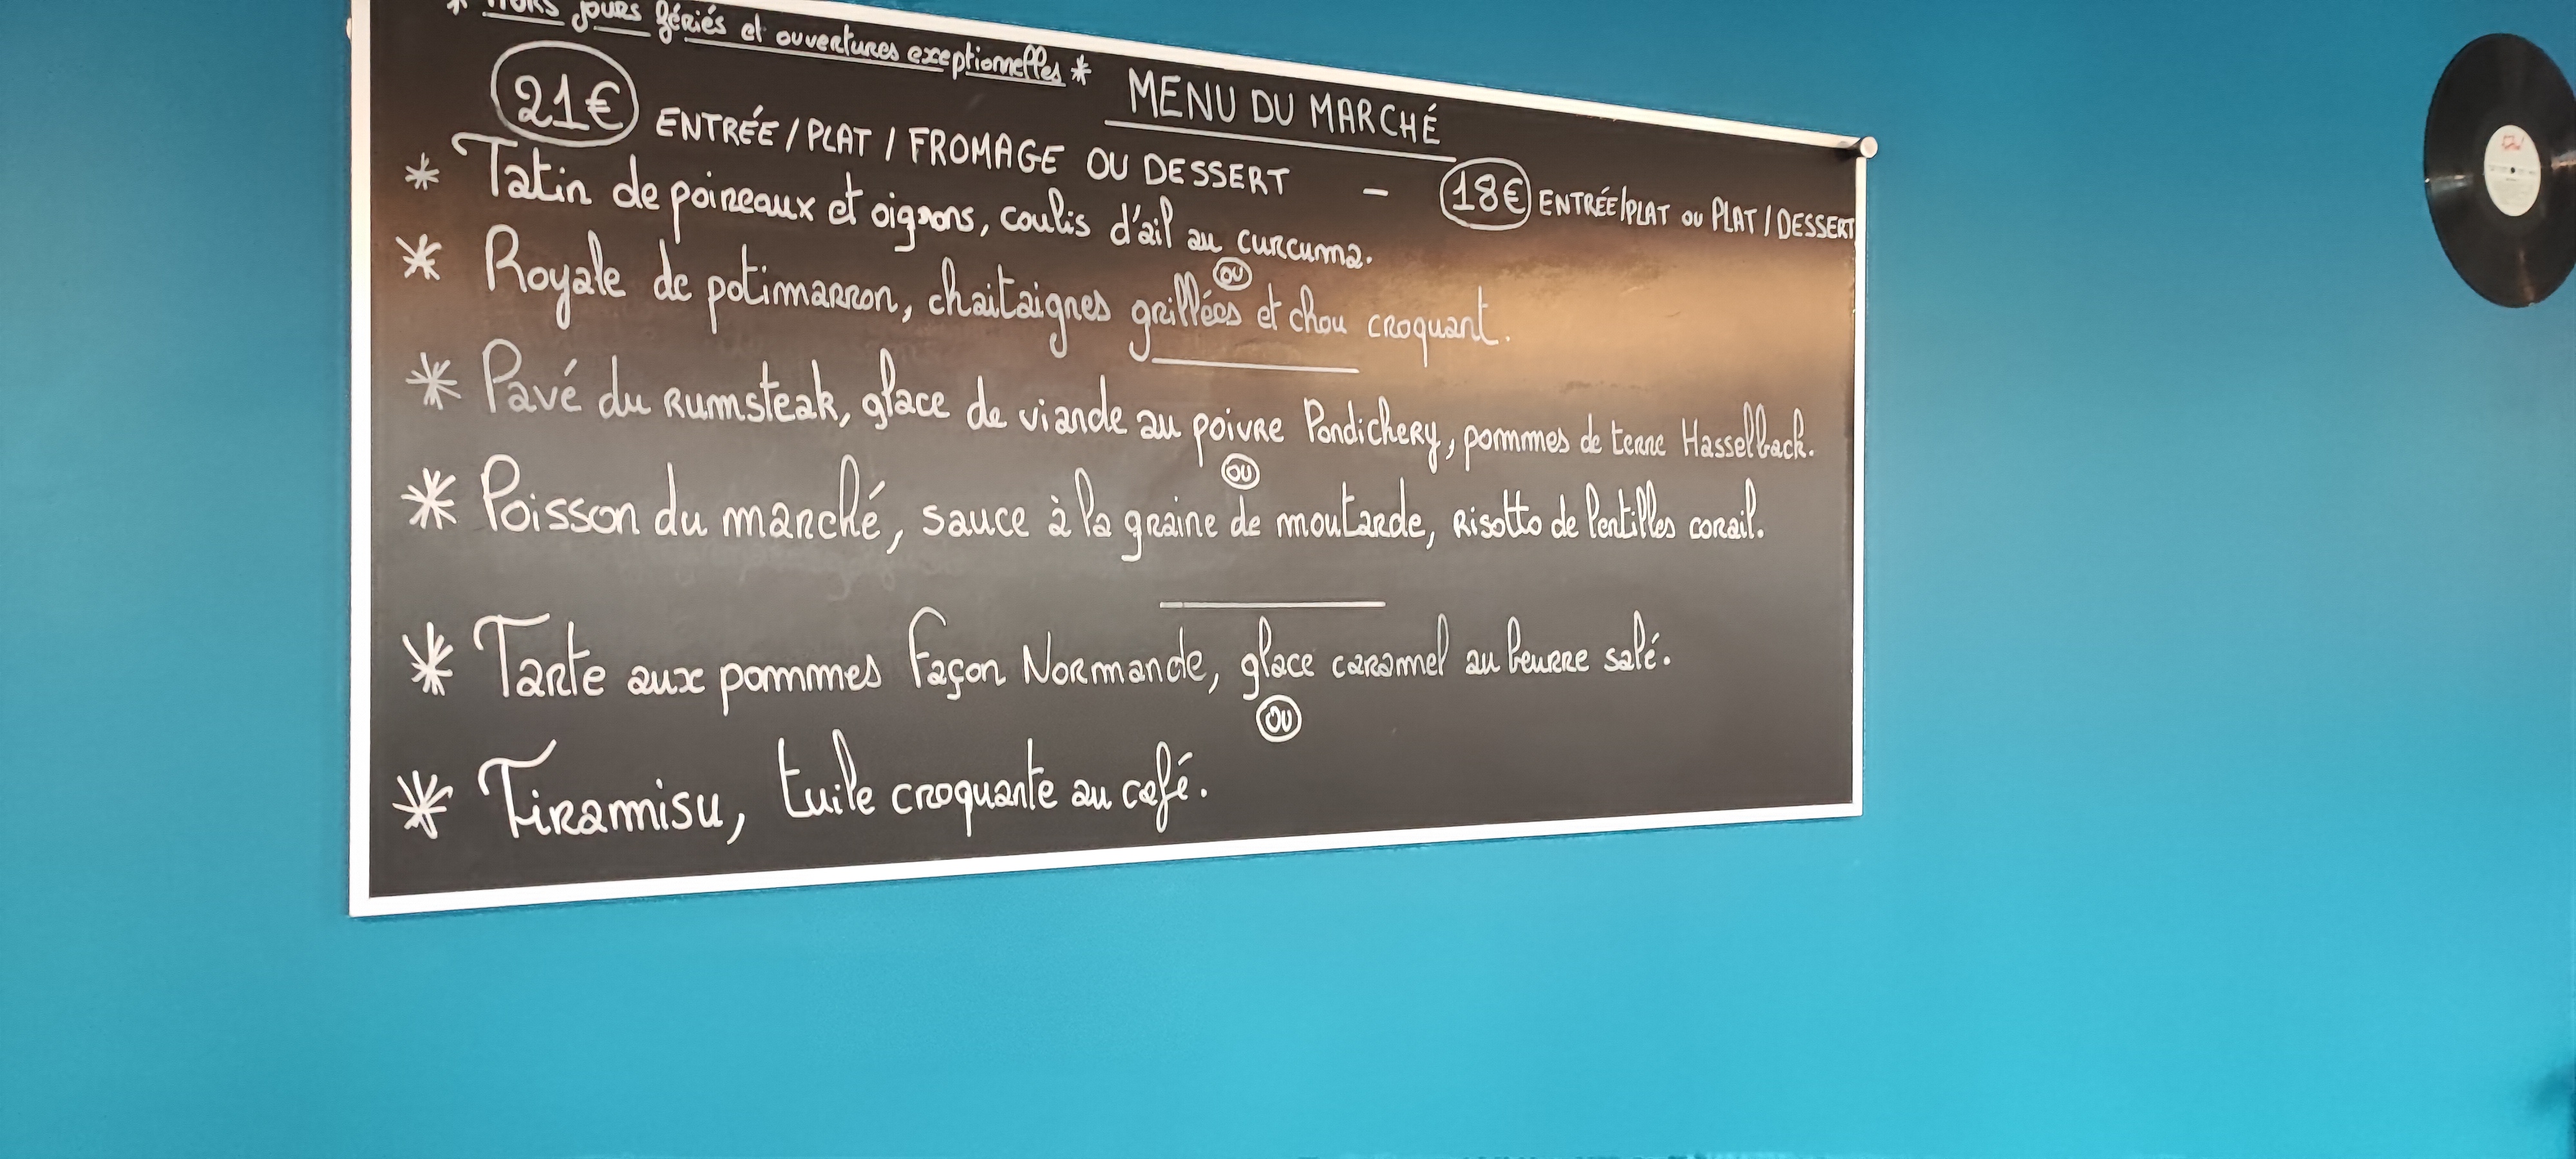 * Hors jours fériés et ouvertures exeptionnelles *
MENU DU MARCHÉ
21€ ENTRÉE / PLAT / FROMAGE OU DESSERT - 18€ ENTRÉE/PLAT ou PLAT / DESSERT
* Tatin de poireaux et oignons, coulis d'ail au curcuma.
OU
* Royale de potimarron, chaitaignes grillées et chou croquant.
* Pavé du rumsteak, glace de viande au poivre Pondichery, pommes de terre Hasselback.
OU
* Poisson du marché, sauce à la graine de moutarde, risotto de lentilles corail.
* Tarte aux pommes façon Normande, glace caramel au beurre salé.
OU
* Tiramisu, tuile croquante au café.